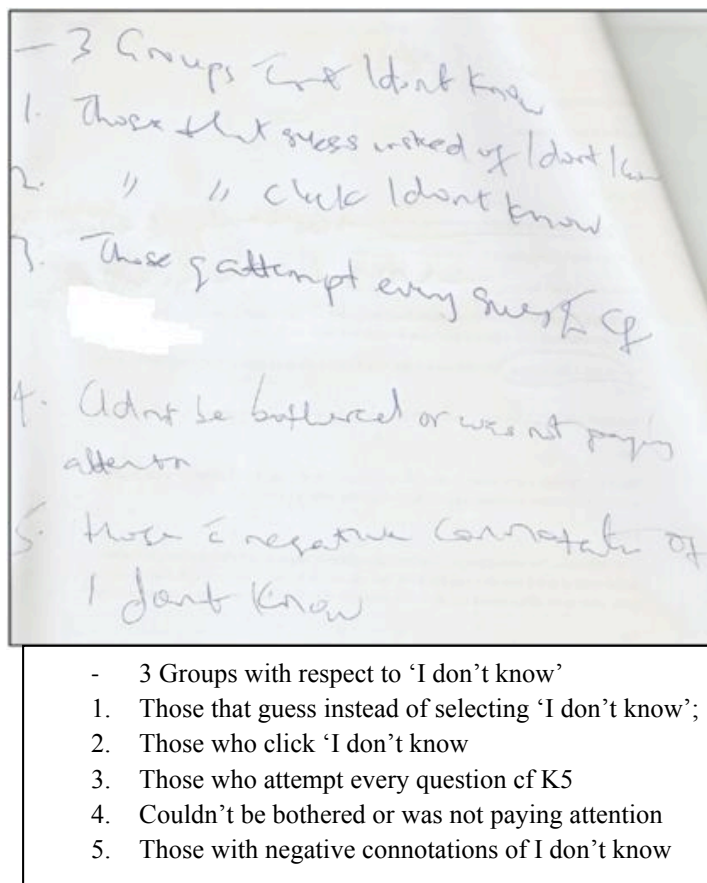 - 3 Groups I don't know
1. Those that guess instead of I don't know
2. " " click I don't know
3. Those attempt every quest cf
4. Cldnt be bothered or was not paying
attention
5. those c̄ negative connotatn of
I dont know
- 3 Groups with respect to ‘I don’t know’
1. Those that guess instead of selecting ‘I don’t know’;
2. Those who click ‘I don’t know
3. Those who attempt every question cf K5
4. Couldn’t be bothered or was not paying attention
5. Those with negative connotations of I don’t know